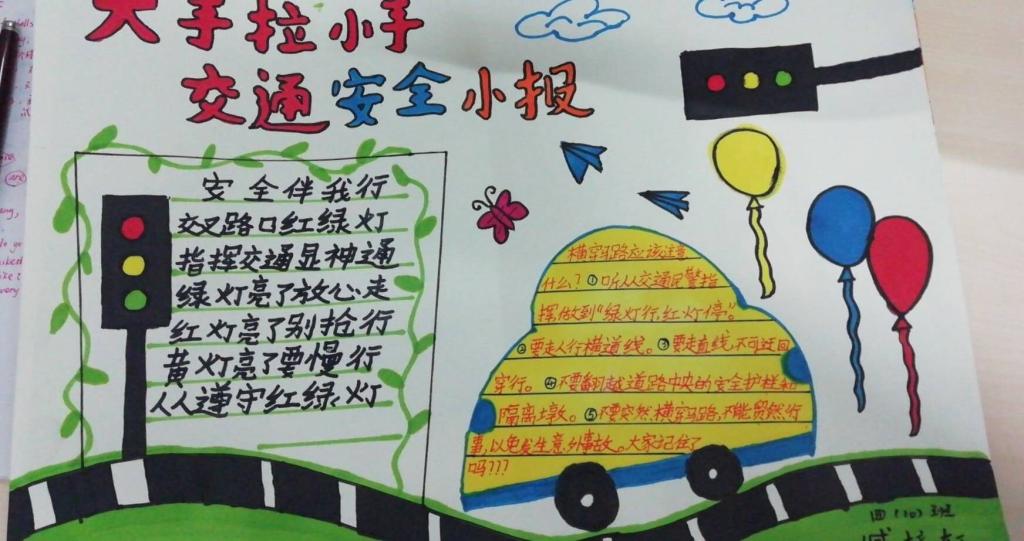 大手拉小手
交通安全小报
安全伴我行
交叉路口红绿灯
指挥交通显神通
绿灯亮了放心走
红灯亮了别抢行
黄灯亮了要慢行
人人遵守红绿灯
横穿马路应该注意
什么？①听从交通民警指
挥，做到“绿灯行，红灯停”。
②要走人行横道线。③要走直线，不可迂回
穿行。④不要翻越道路中央的安全护栏和
隔离墩。⑤不要突然横穿马路，不能贸然行
事，以免发生意外事故。大家记住了
吗???
四（10）班